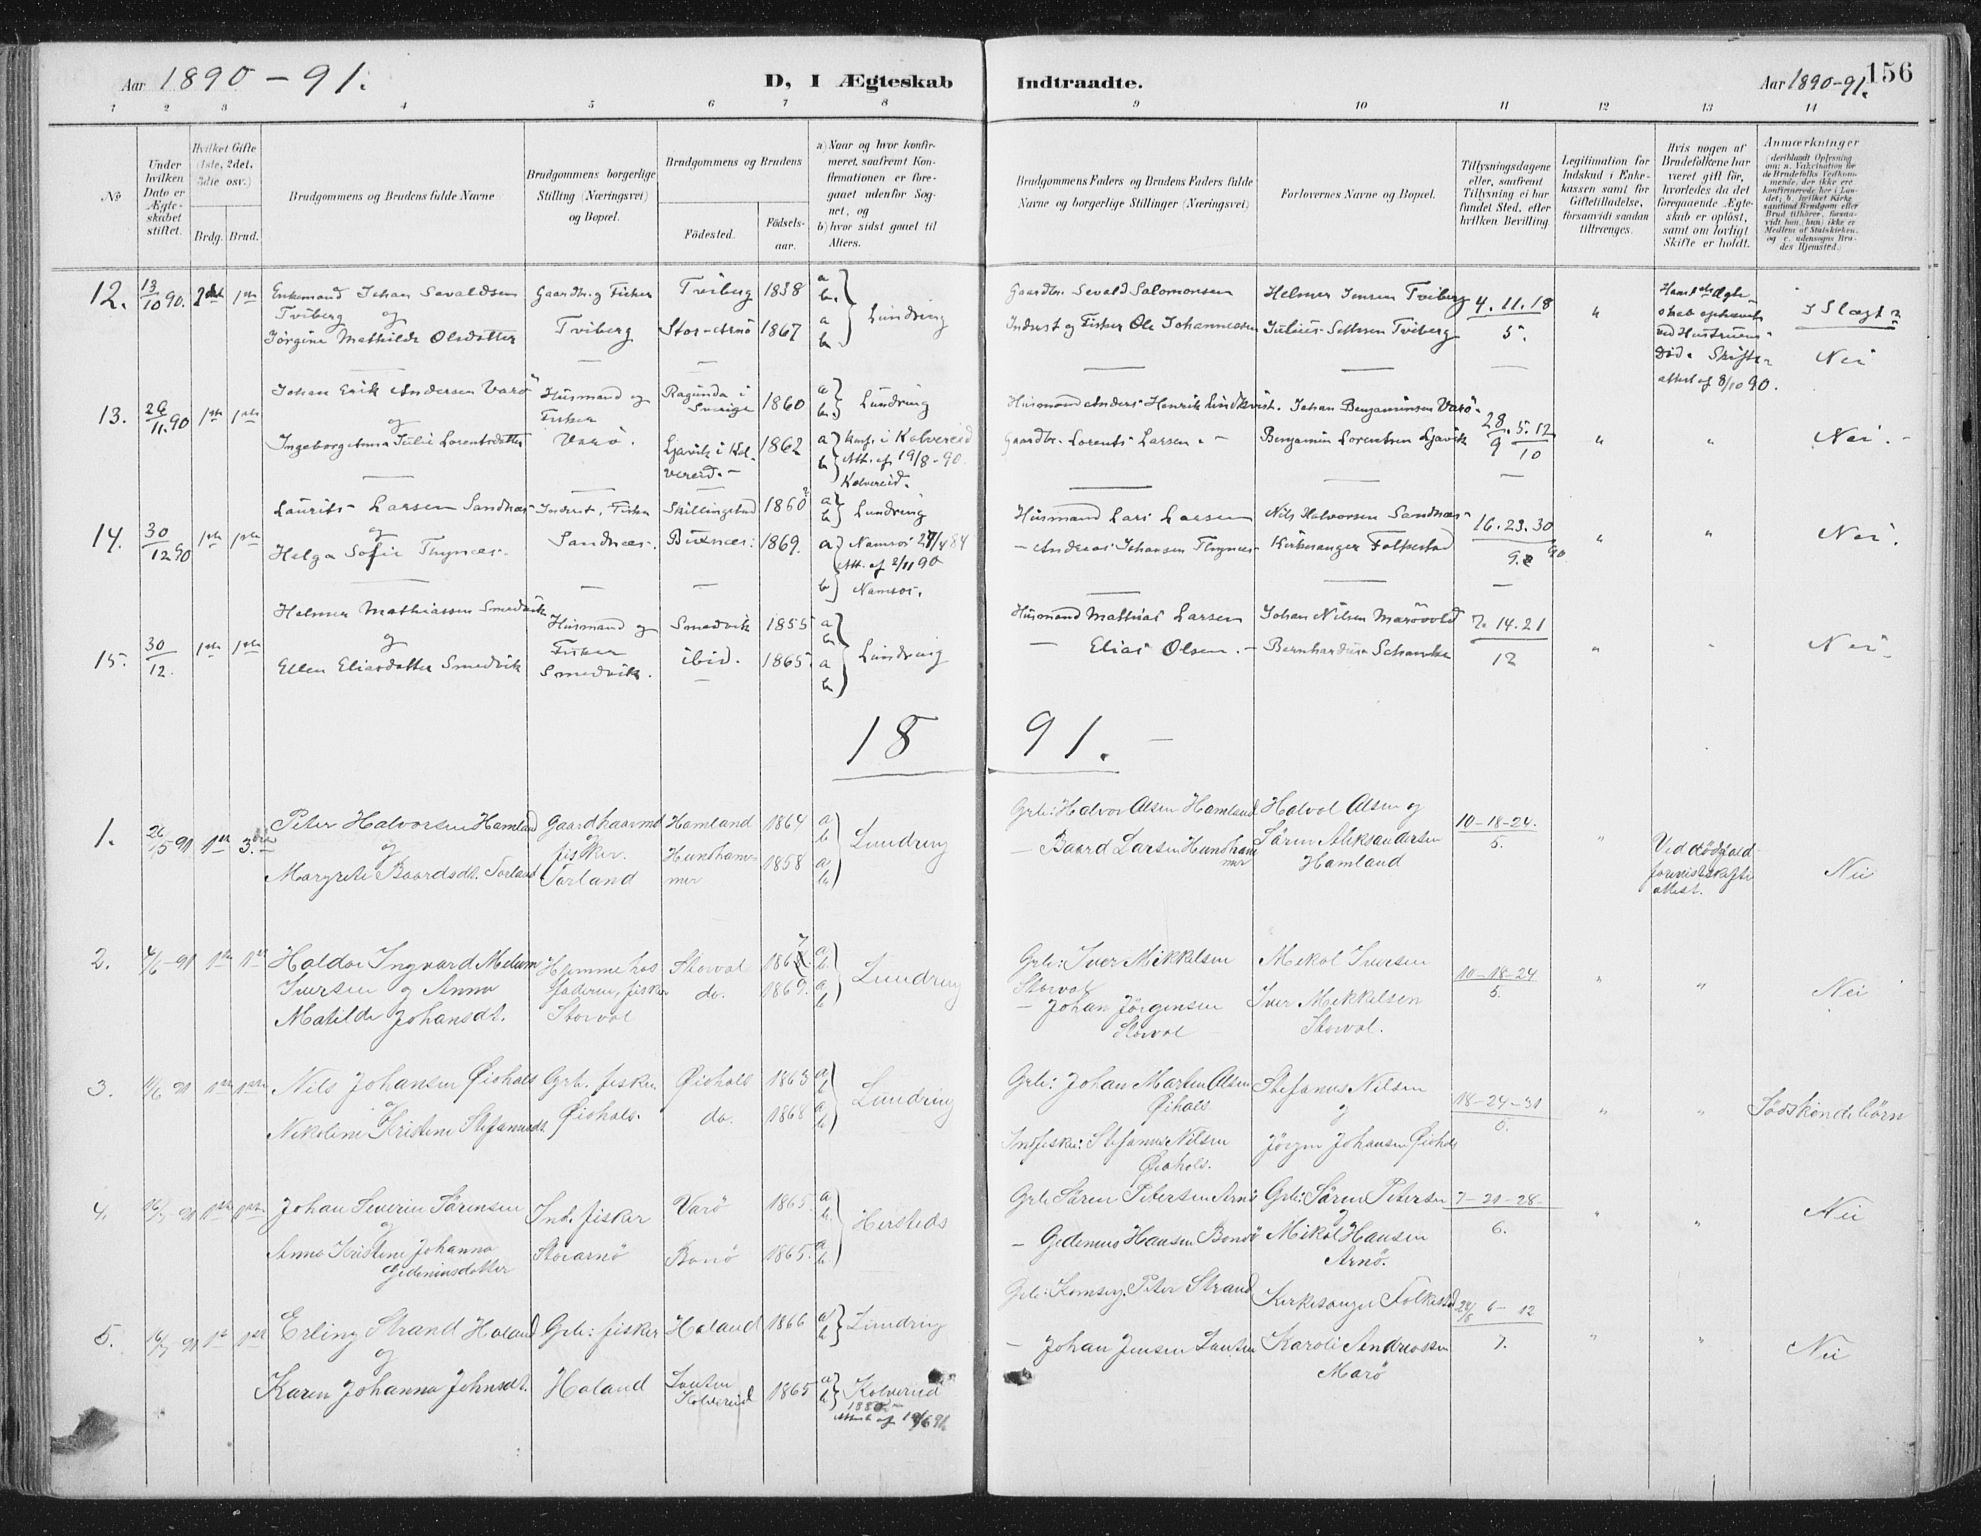 Aar 1890-91.
D, I Ægteskab Indtraadte.
Aar 1890-91.
156
1 2 3 4 5 6 7 8 9 10 11 12 13 14
No
Under hvilken Dato er Ægteskabet stiftet.
Hvilket Gifte (1ste, 2det, 3die osv.)
Brdg. Brud.
Brudgommens og Brudens fulde Navne
Brudgommens borgerlige Stilling (Næringsvei) og Bopæl.
Brudgommens og Brudens
Fødested.
Fødselsaar.
a) Naar og hvor konfirmeret, saafremt Konfirmationen er foregaaet udenfor Sognet, og
b) hvor sidst gaaet til Alters.
Brudgommens Faders og Brudens Faders fulde Navne og borgerlige Stillinger (Næringsvei)
Forlovernes Navne og Bopæl.
Tillysningsdagene eller, saafremt Tillysning ei har fundet Sted, efter hvilken Bevilling
Legitimation for Indskud i Enkekassen samt for Giftetilladelse, forsaavidt saadan tiltrænges.
Hvis nogen af Brudefolkene har været gift før, hvorledes da det foregaaende Ægteskab er opløst, samt om lovligt Skifte er holdt.
Anmærkninger
12. 13/10 90. 2det 1ste Enkemand Johan Sevaldsen Gaardbr. og Fisker Tviberg 1838 a Gaardbr. Sevald Salomonsen Helmer Jensen Tviberg 4. 11. 18 " Hans 1ste Ægte-
Tviberg og b. Lundring skab ophævet I Slægt?
Jørgine Mathilde Olsdatter Tviberg Stor-Arnö 1867 a b Inderst og Fisker Ole Johannessen Julius Sethsen Tviberg 5. ved Hustruens Nei
Död. Skifte-
attest af 8/10 90.
13. 26/11 90 1ste 1ste Johan Erik Andersen Varö Husmand og Ragunda i Sverige 1860 a b Lundring Husmand Anders Henrik Lindkvist. Johan Benjaminsen Varö. 28/9 5. 12/10 " " Nei.
og Fisker
Ingeborg Anna Julie Lorentsdatter Varö. Ljavik i Kolvereid. 1862 a Konf. i Kolvereid Gaardbr. Lorents Larsen. Benjamin Lorentsen Ljavik
b Att. af 19/8-90
Kolvereid.
14. 30/12 90 1ste 1ste Laurits Larsen Sandnæs Inderst, Fisker Skillingstad 1860 a b Lundring Husmand Lars Larsen Nils Halvorsen Sandnæs 16. 23. 30 " " Nei.
og
Helga Sofie Thynæs. Sandnæs. Buxnæs. 1869. a Namsos 27/4 84 - Andreas Johansen Thynæs Kirkesanger Folkestad 9. 90
Att. af 2/11 90
b Namsos.
15. 30/12. 1ste 1ste Helmer Mathiassen Smedvik Husmand og Smedvik 1855 a b Lundring Husmand Mathias Larsen Johan Nilsen Marövold 7. 14. 21 " " Nei.
og Fisker
Ellen Eliasdatter Smedvik Smedvik. ibid. 1865 a b - Elias Olsen. Bernhardus Schanke 12
1891.
1. 26/5 91 1ste 3die Peter Halvorsen Hamland Gaardhaarmd Hamland 1864 a b Lundring Grb: Halvor Olsen Hamland Halvol Olsen og 10-18-24. "
og fisker. Hundham- - Baard Larsen Hundhammer Sören Aleksandersen 5. Ved död
Margrete Baardsdt. Torland Torland mer 1858 a b Hamland Nei
attest.
2. 4/6-91 1ste 1ste Haldor Ingvard Melum Hjemme hos Storval 1867 a b Lundring Grb: Iver Mikkelsen Mekal Iversen 10-18-24 " " Nei
Iversen og Anna faderen, fisker do. 1869. a b Storval
Matilde Johansdt. Storval - Johan Jörgensen Iver Mekkelsen 5.
Storval Storval.
3. 11/6 91 1ste 1ste Nils Johansen Øiohols Grb. fisker Øiohols 1863 a b Lundring Grb: Johan Martin Olsen Stefanus Nilsen 18-24-31 " " Södskendebörn
og Øiohols. Øiohols og 5.
Nikoline Kristine Stefanusdt. do. 1868 a b Ind. fisker: Stefanus Nilsen Jörgen Johansen Øiohols
Øiohols.
4. 1ste 1ste Johan Severin Sörensen Ind. fisker Varö 1865. a b. Hersteds Grb Sören Petersen Arnö Grb: Sören Petersen 7-21-28 " " Nei
og og 6.
Anna Kristine Johanna Storarnö Bonö 1865. a b - Gedenius Hansen Bondö Mikal Hansen
Gedeniusdatter Arnö.
5. 16/7 91 1st 1ste Erling Strand Holand Grb: fisker Holand 1866 a b Lundring Grb: Peter Strand Kirkesanger Folkestad 28/6 6-12 " " Nei
og 7.
Karen Johanna Johnsdt. Holand Kolvereid 1865 a b Kolvereid - Johan Jensen Karoli Andreassen
Attest af 19/6 91 Marö